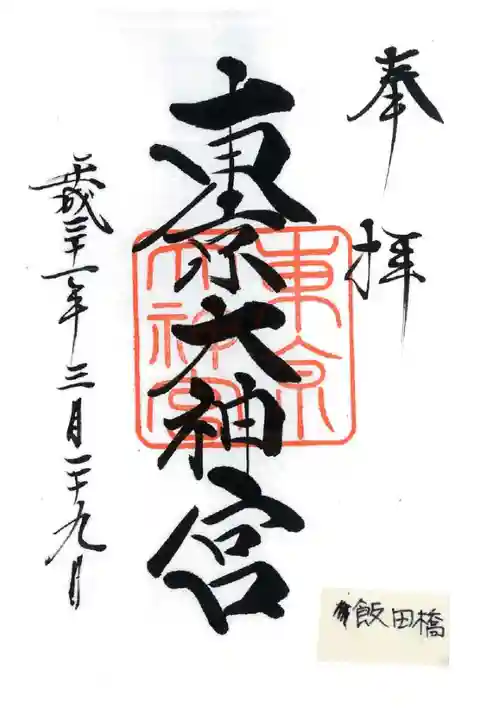 奉拝
東京大神宮
東京大神宮
平成三十一年三月二十九日
飯田橋